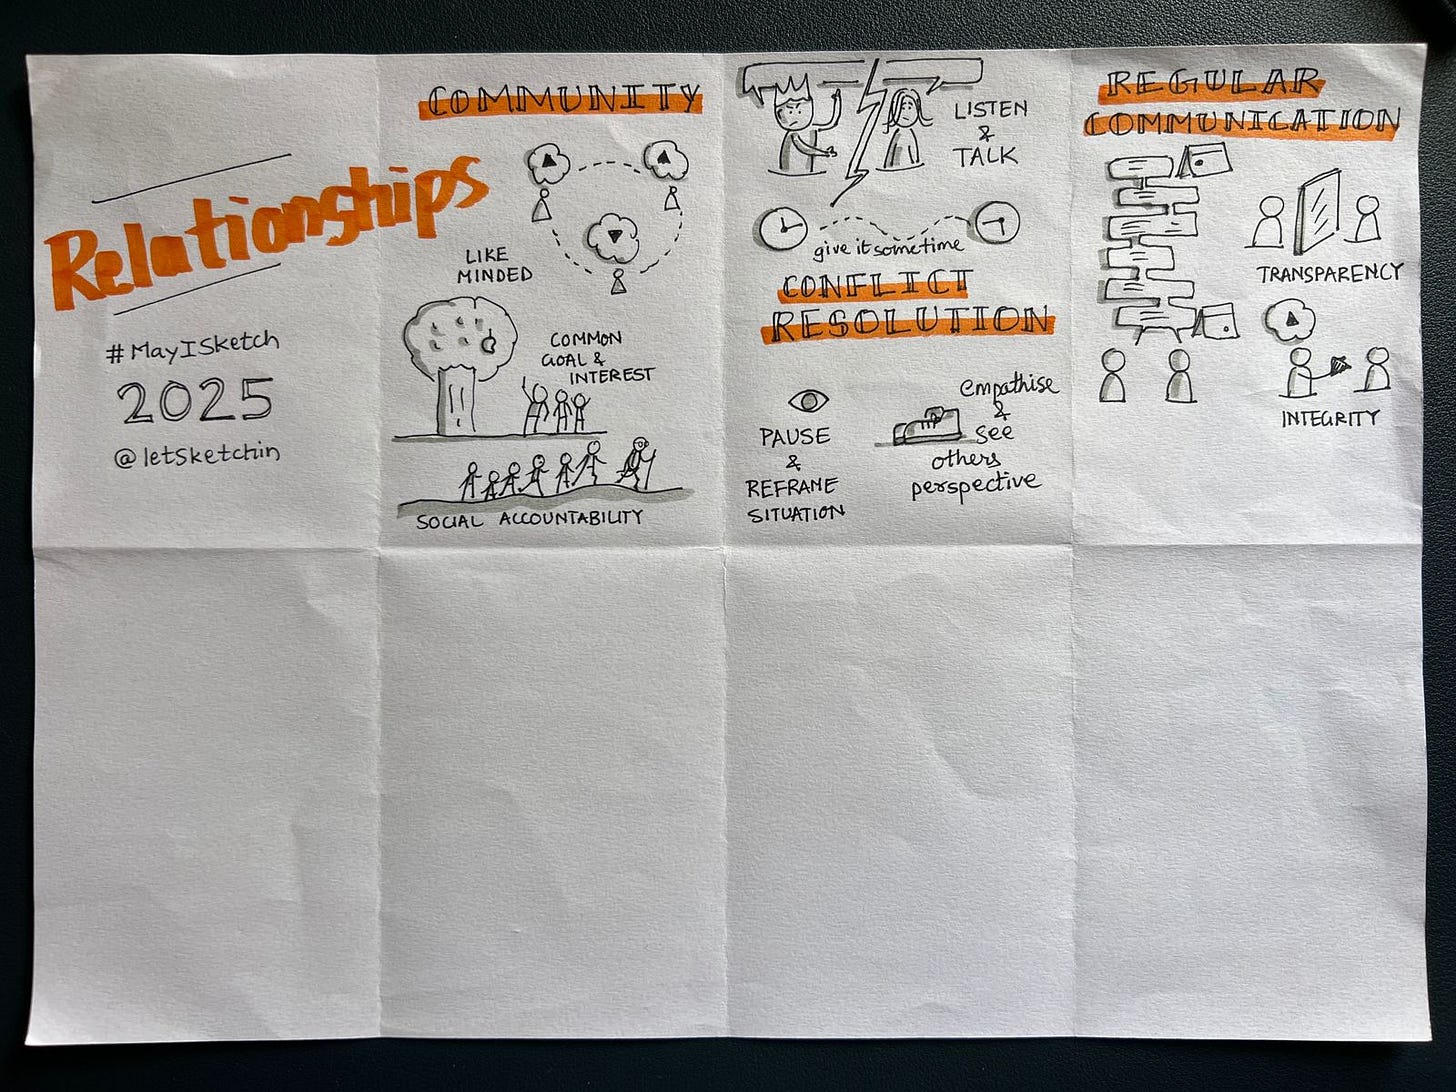 Relationships
#MayISketch
2025
@letSketchin
COMMUNITY
LIKE
MINDED
COMMON
GOAL &
INTEREST
SOCIAL ACCOUNTABILITY
LISTEN
&
TALK
give it sometime
CONFLICT
RESOLUTION
PAUSE
&
REFRAME
SITUATION
empathise
&
see
others
perspective
REGULAR
COMMUNICATION
TRANSPARENCY
INTEGRITY